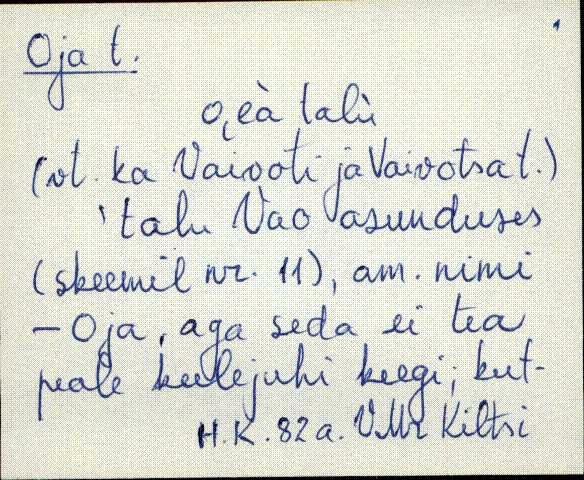 Oja t.
o̭èà talù
(vt. ka Vaivoti ja Vaivotsa t.)
'talu Vao asunduses
(skeemil nr. 11), am. nimi
– Oja, aga seda ei tea
peale keelejuhi keegi; kut-
H.K. 82 a. VMr Kiltsi